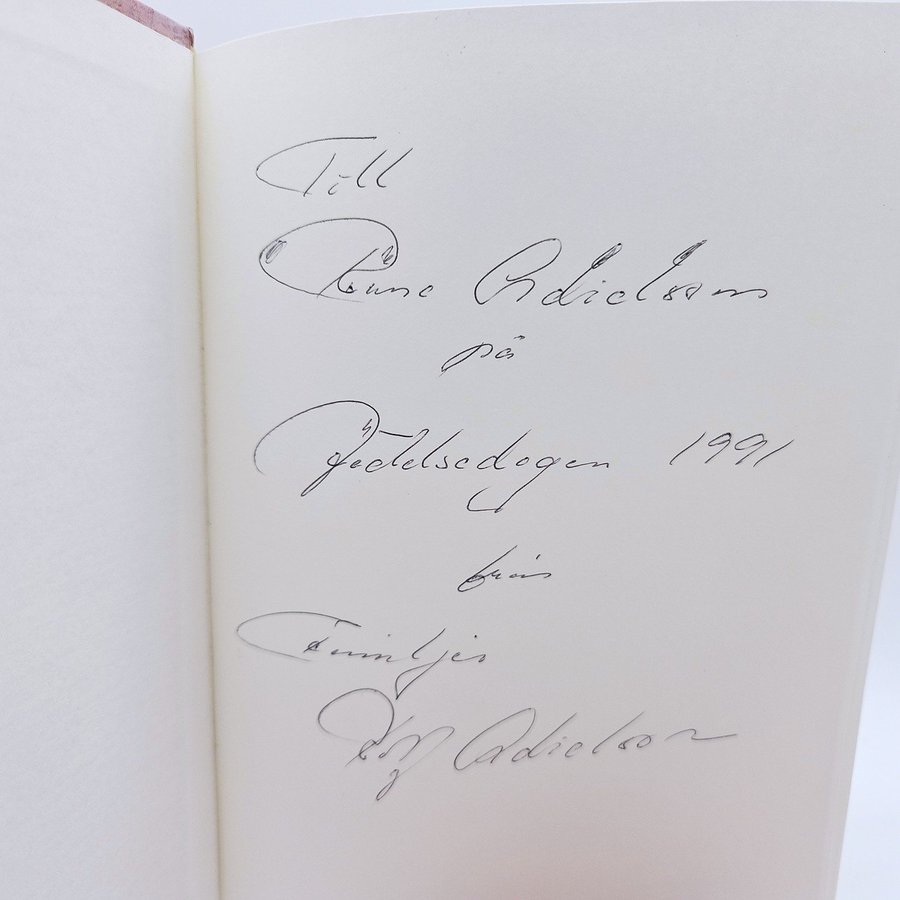 Till
Rune Adielsson
på
Födelsedagen 1991
från
Familjen
Rolf Adielsson